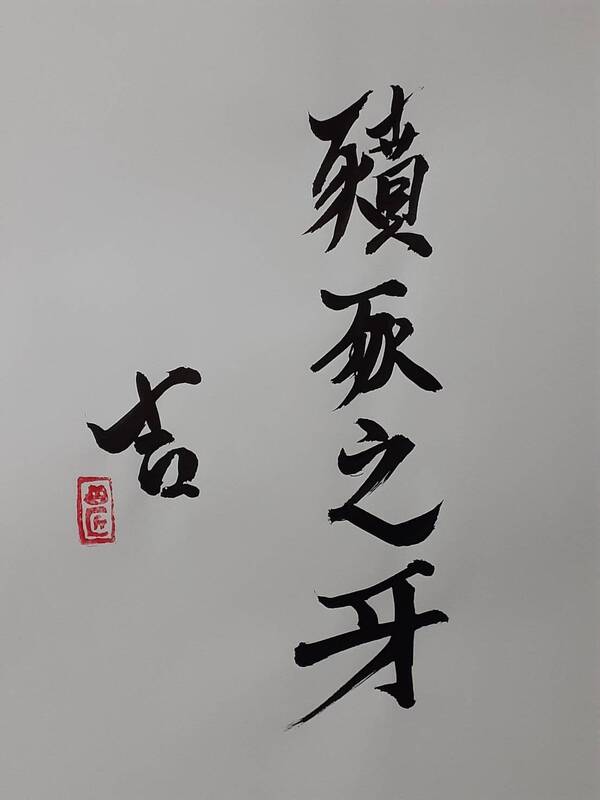 豶豕之牙
吉